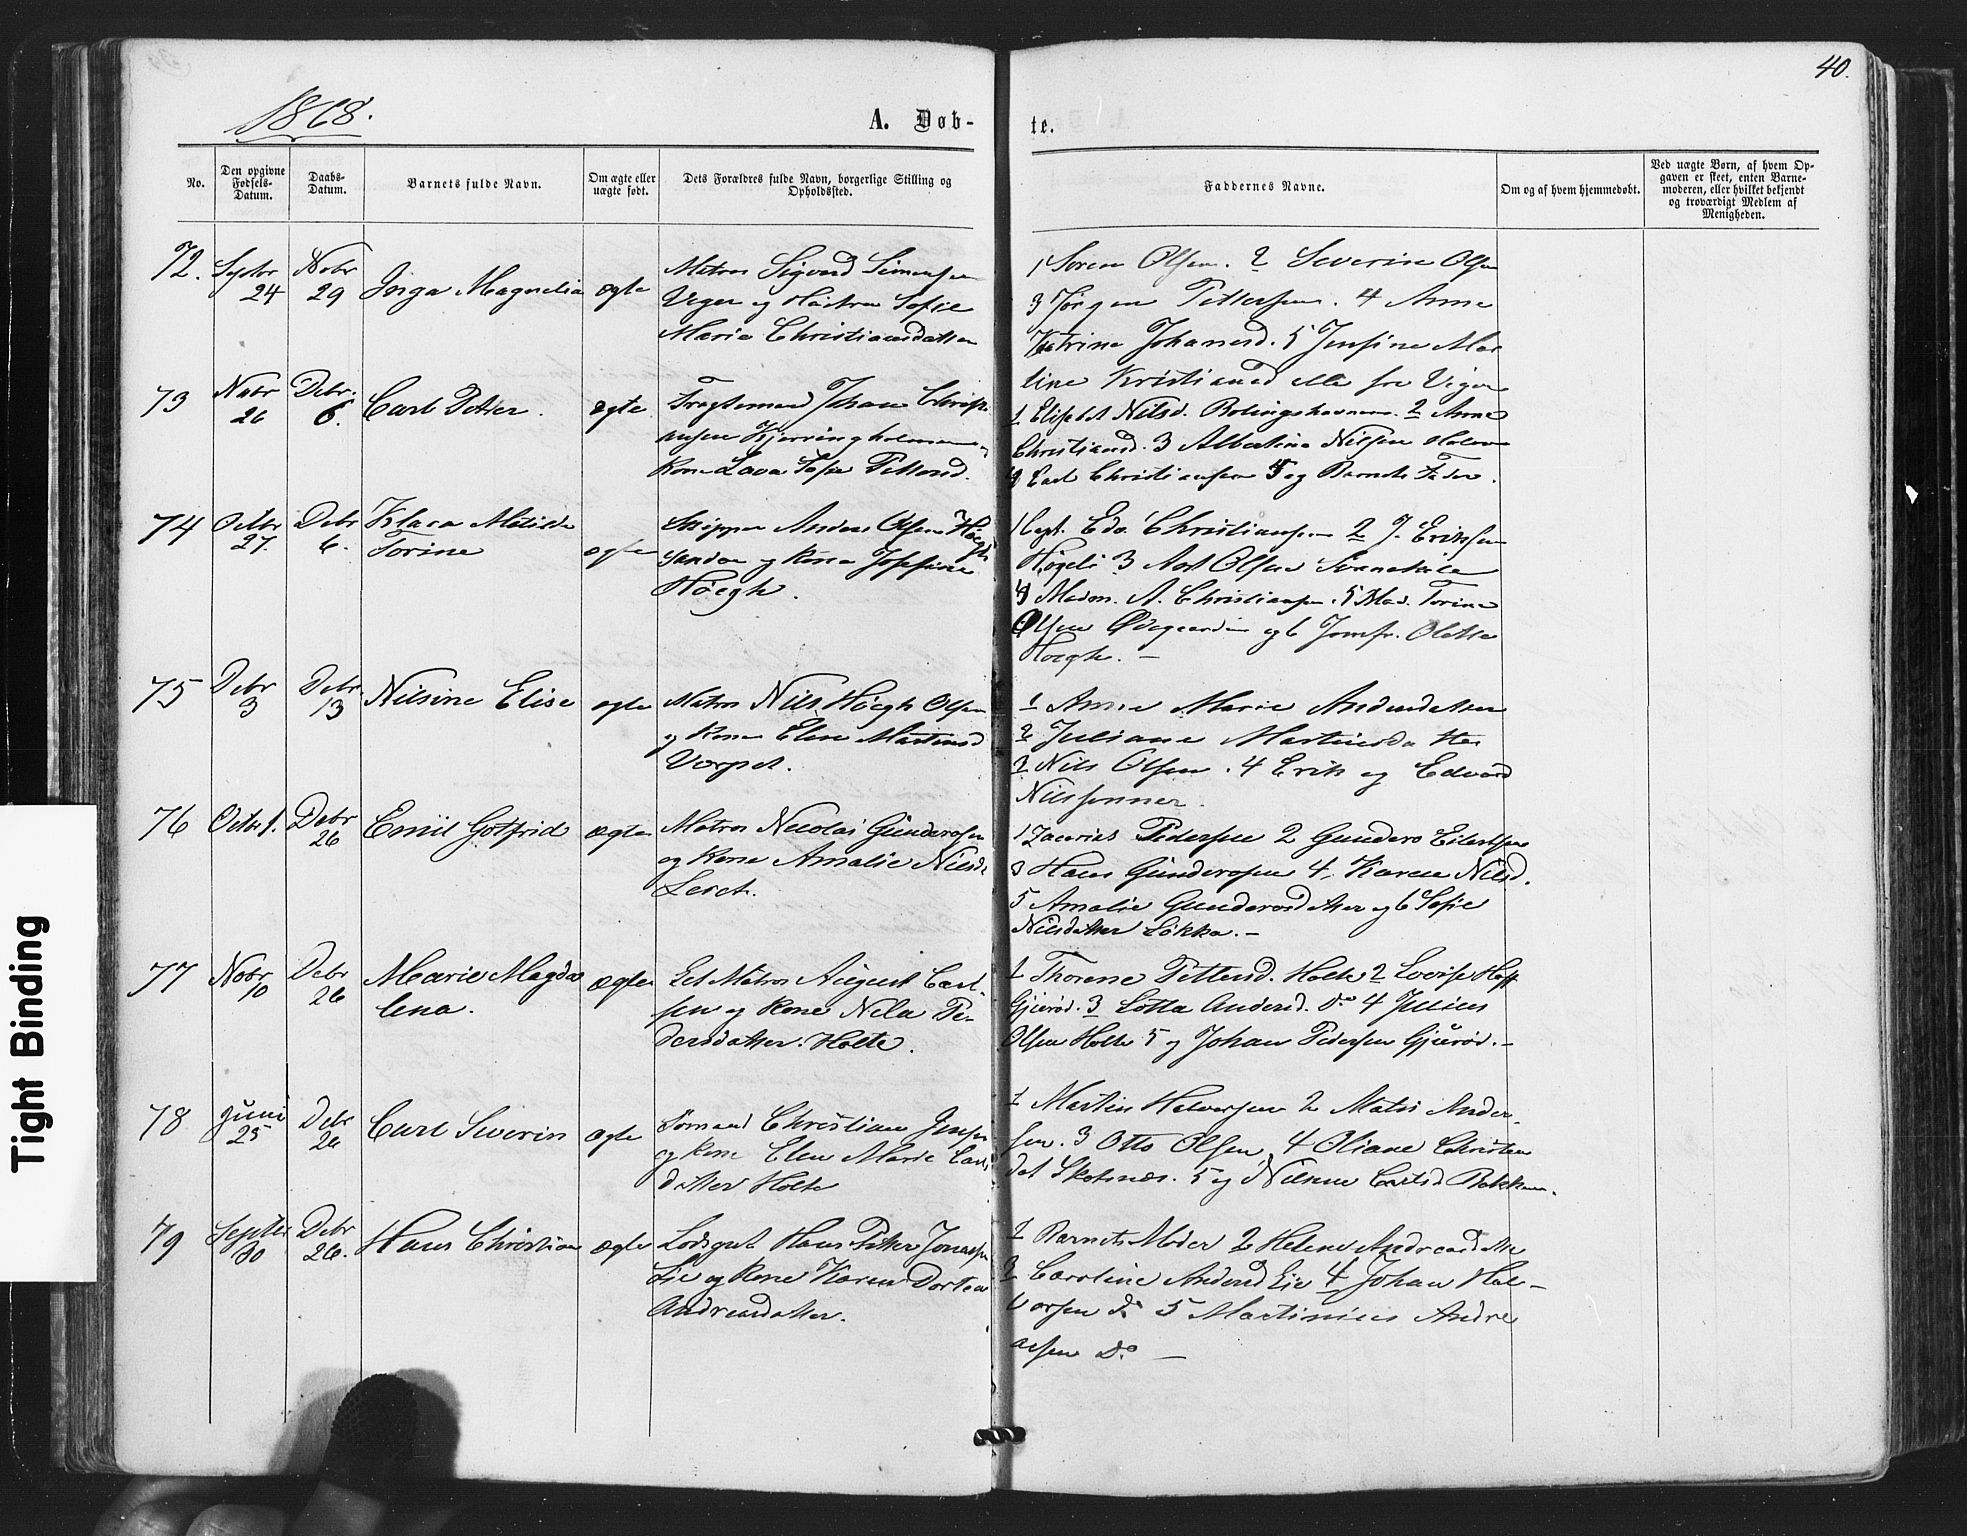 40.
1868.
A. Døb-
te.
No.
Den opgivne Fødsels-Datum.
Daabs-Datum.
Barnets fulde Navn.
Om ægte eller uægte født.
Dets Forældres fulde Navn, borgerlige Stilling og Opholdssted.
Faddernes Navne.
Om og af hvem hjemmedøbt.
Ved uægte Børn, af hvem Opgaven er skeet, enten Barnemoderen, eller hvilket bekjendt og troværdigt Medlem af Menigheden.
72. Septbr 24 Novbr 29 Inga Magnelia ægte
Matros Sigvard Simensen
og Hustru Sofie
Marie Christiansdatter
1 Søren Olsen. 2 Severine Olsen
3 Jørgen Pettersen. 4 Anne
Katrine Johannesd. 5 Jensine Ma
line Kristiansd alle fra
73 Novbr 26 Debr. 6. Carl Petter. ægte
Johan Christi
ansen Kjerringholmen
Kone Lava Sofie Pettersd.
1 Elisabet Nilsd. 2 Anne
Christiansd. 3 Albertine Nilsen
4 Carl Christiansen 5 og Barnets Fader.
74 Octbr 27. Debr 6. Klara Matilde
Torine ægte
Skipper Anders Olsen Høegh
og Kone Josefine
Høegh.
1 Capt. Edv. Christiansen 2 J. Eriksen
3 Olsen
4 Madm. A. Christiansen. 5 Mad. Torine
Olsen og 6 Jomfr. Olette
Høegh. —
75 Debr 3 Debr. 13 Nilsine Elise ægte
Matros Nils Høegh Olsen
og Kone Elise Martinsd
1 Anne Marie Andersdatter
2 Juliane Martinsdatter
3 Nils Olsen. 4 Erik og Edvard
Nilssønner.
76 Octbr 1. Debr 26 Emil Gotfrid ægte
Matros Nicolai Gundersen
og Kone Amalie Nilsd.
1 Zacarias Pedersen 2 Gunder Eilertsen
3 Hans Gundersen 4. Karen Nilsd.
5 Amalie Gundersdatter og 6 Sofie
Nilsdatter Løkka. —
77 Novbr 10 Debr 26 Marie Magda
lena. ægte
Matros August Carl-
sen og Kone Nela Pe-
dersdatter. Holte.
1 Thorene Pettersd. Holte 2 Lovise
Gjerød. 3 Lotta Andersd. do 4 Julius
Olsen Holte 5 og Johan Pedersen Gjerød. —
78 Juni 25 Debr 26 Carl Severin ægte
Sømand Christian Jensen
og Kone Elen Marie Carls
datter Holte
1 Martin Halvorsen 2 Mathis Ander-
sen. 3 Otto Olsen, 4 Oliane Christen
dat Skotsnæs. 5 og Nilsine Bakken.
79 Septbr 30 Debr 26. Hans Christian ægte
Hans Petter Jonassen
Lie og Kone Karen Dortea
Andreasdatter.
1 Barnets Moder 2 Helene Andreasdatter
3 Caroline Andersd Lie 4 Johan Hal-
vorsen do 5 Martinius Andre
assen Do —
Tight Binding